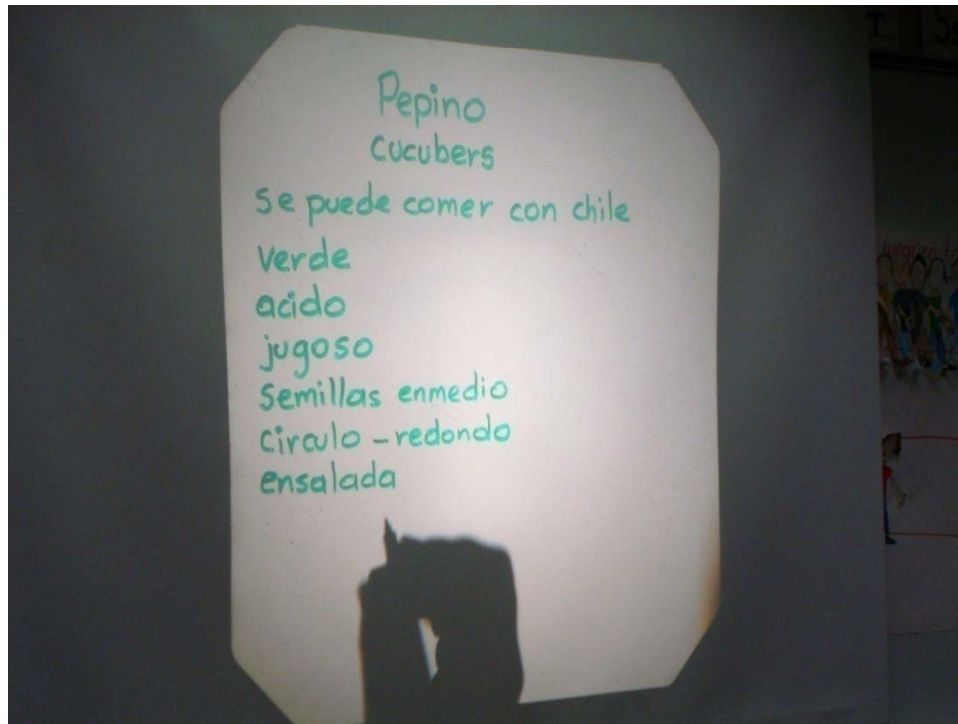 Pepino
Cucubers
se puede comer con chile
verde
acido
jugoso
semillas enmedio
circulo - redondo
ensalada